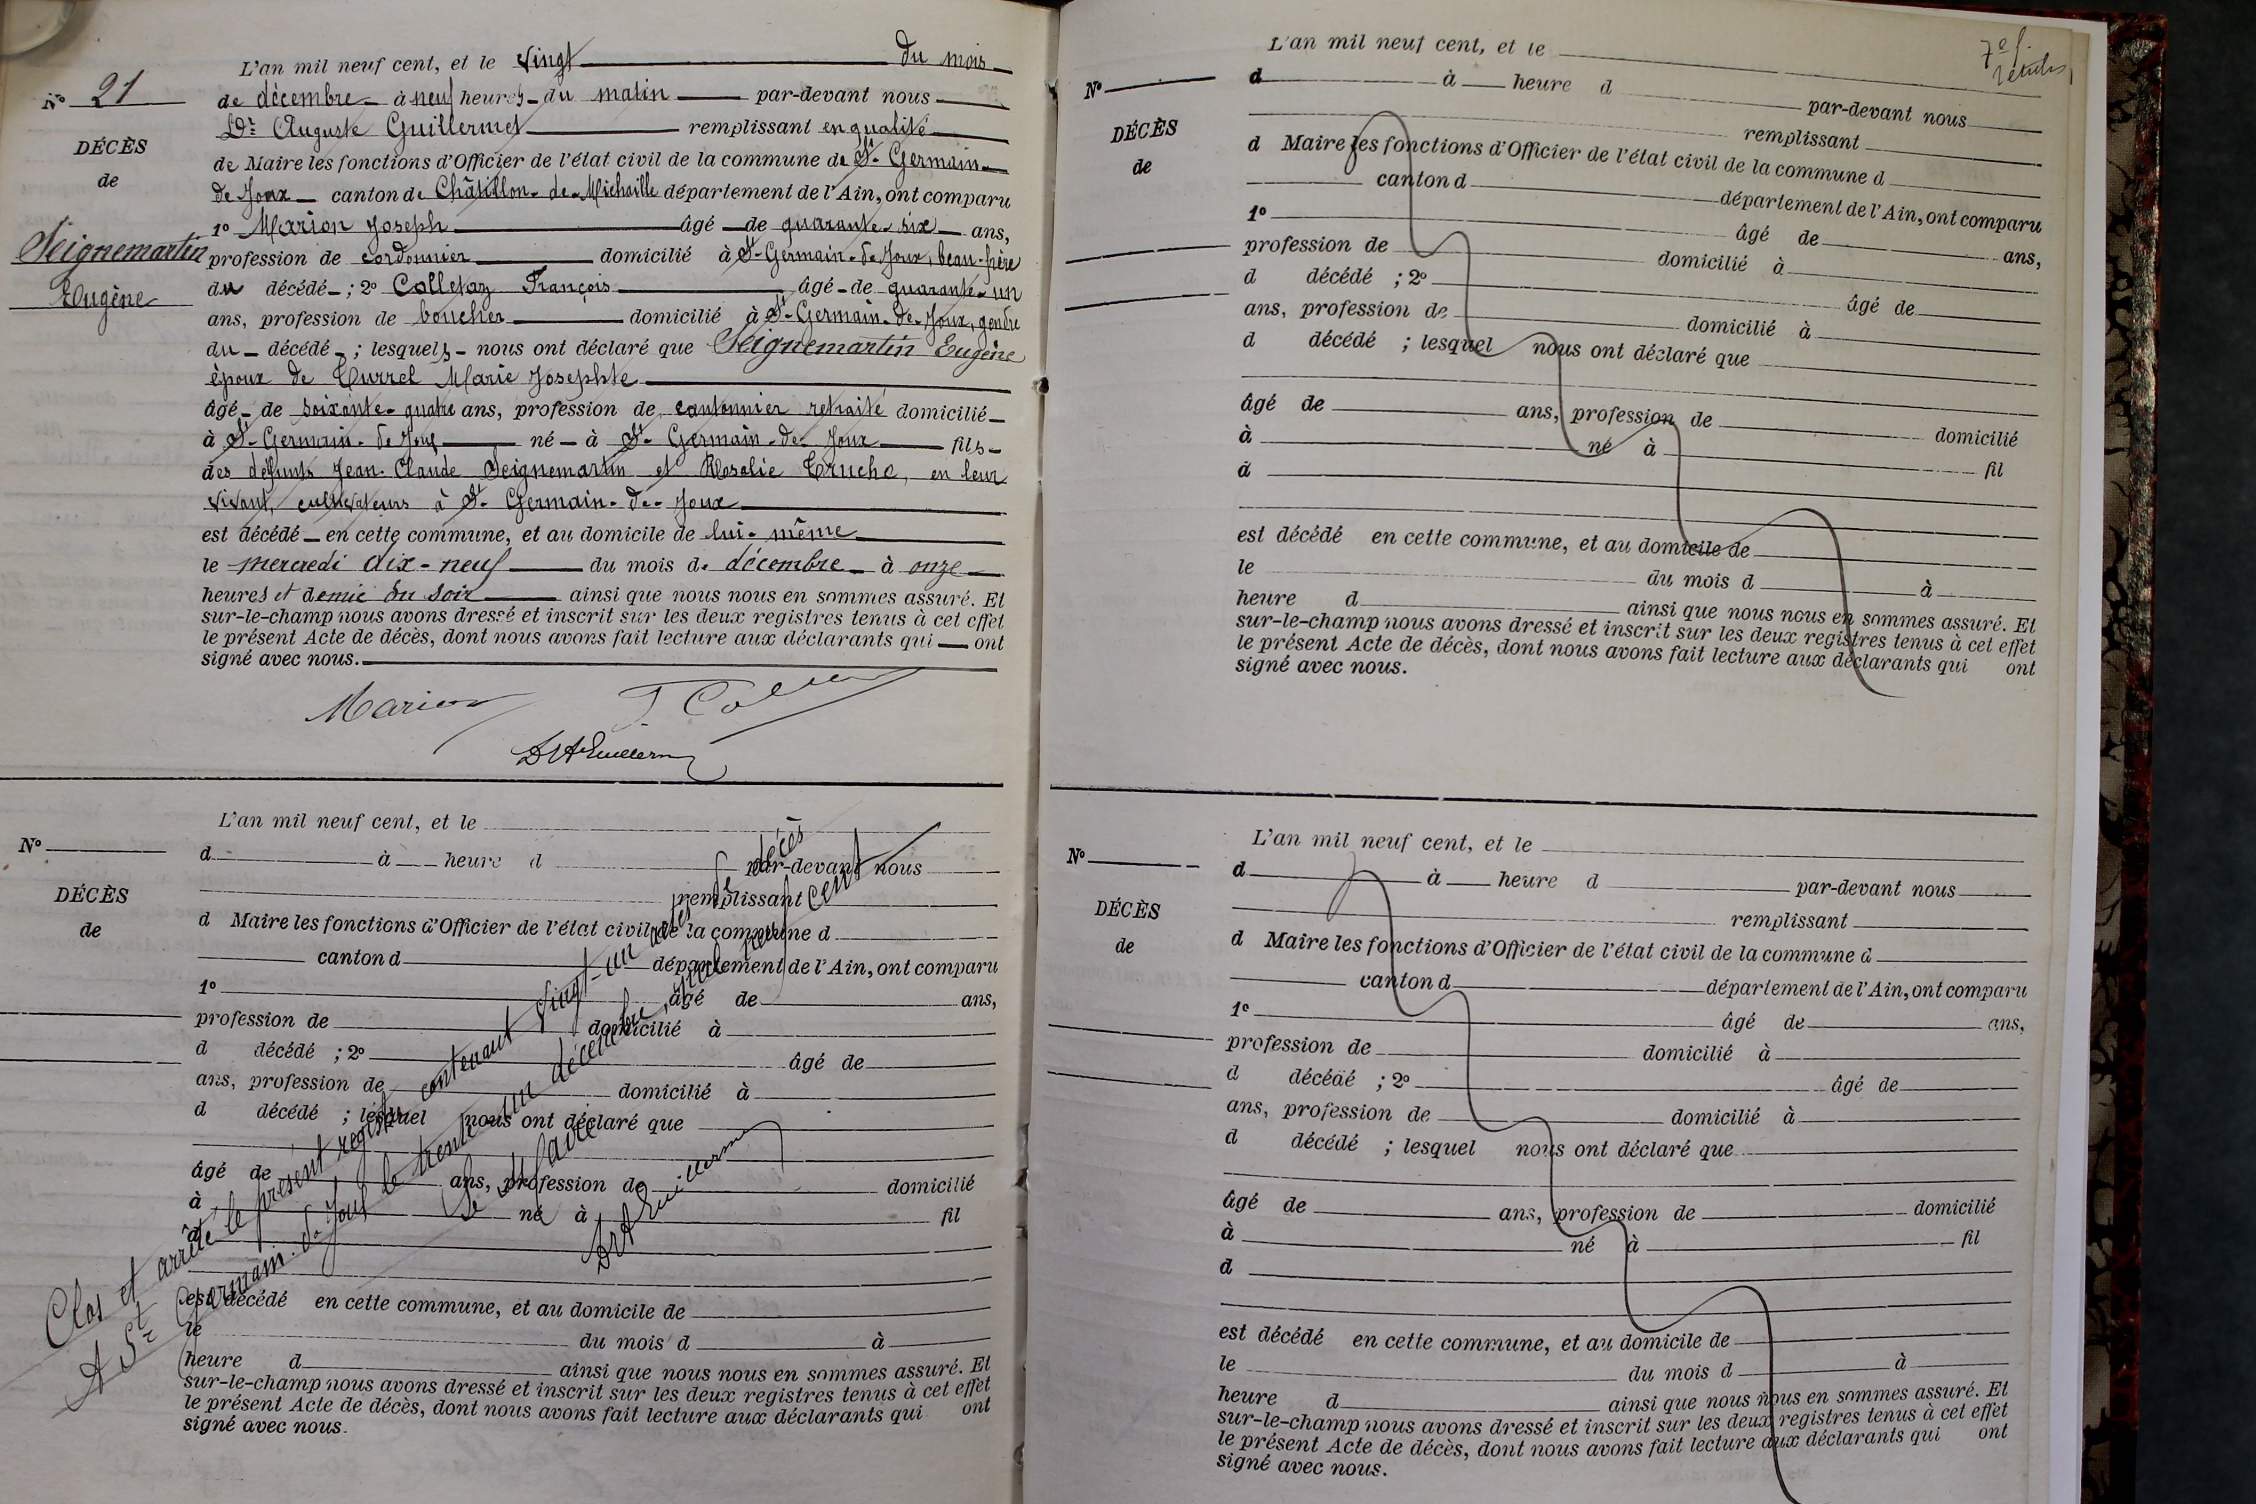 L'an mil neuf cent, et le vingt du mois
N° 21
de décembre à neuf heures du matin par-devant nous
Dr Auguste Guillermet remplissant en qualité
DÉCÈS
de
de Maire les fonctions d'Officier de l'état civil de la commune de St-Germain-
de Joux canton de Châtillon-de-Michaille département de l'Ain, ont comparu
1° Marion Joseph âgé de quarante-six ans,
Seignemartin
Eugène
profession de cordonnier domicilié à St-Germain-de-Joux, beau-frère
du décédé ; 2° Colletaz François âgé de quarante-un
ans, profession de boucher domicilié à St-Germain-de-Joux, gendre
du décédé ; lesquels nous ont déclaré que Seignemartin Eugène
époux de Curret Marie Josephte
âgé de soixante-quatre ans, profession de cantonnier retraité domicilié
à St-Germain-de-Joux né à St-Germain-de-Joux fils
des défunts Jean-Claude Seignemartin et Rosalie Truche, en leur
vivant, cultivateurs à St-Germain-de-Joux
est décédé en cette commune, et au domicile de lui-même
le mercredi dix-neuf du mois de décembre à onze
heures et demie du soir ainsi que nous nous en sommes assuré. Et
sur-le-champ nous avons dressé et inscrit sur les deux registres tenus à cet effet
le présent Acte de décès, dont nous avons fait lecture aux déclarants qui ont
signé avec nous.
Marion
DrAGuillerm
L'an mil neuf cent, et le
N°
d à heure d par-devant nous
remplissant
DÉCÈS
de
d Maire les fonctions d'Officier de l'état civil de la commune d
canton d département de l'Ain, ont comparu
1° âgé de ans,
profession de domicilié à
d décédé ; 2° âgé de
ans, profession de domicilié à
d décédé ; lesquel nous ont déclaré que
âgé de ans, profession de domicilié
à né à fil
d
est décédé en cette commune, et au domicile de
le du mois d à
heure d ainsi que nous nous en sommes assuré. Et
sur-le-champ nous avons dressé et inscrit sur les deux registres tenus à cet effet
le présent Acte de décès, dont nous avons fait lecture aux déclarants qui ont
signé avec nous.
Clos et arrêté le présent registre contenant vingt-un actes de décès
A St Germain-de-Joux le trente-un décembre, mil neuf cent
Le Maire
DrAGuillerm
7e f.
L'an mil neuf cent, et le
N°
d à heure d par-devant nous
remplissant
DÉCÈS
de
d Maire les fonctions d'Officier de l'état civil de la commune d
canton d département de l'Ain, ont comparu
1° âgé de ans,
profession de domicilié à
d décédé ; 2° âgé de
ans, profession de domicilié à
d décédé ; lesquel nous ont déclaré que
âgé de ans, profession de domicilié
à né à fil
d
est décédé en cette commune, et au domicile de
le du mois d à
heure d ainsi que nous nous en sommes assuré. Et
sur-le-champ nous avons dressé et inscrit sur les deux registres tenus à cet effet
le présent Acte de décès, dont nous avons fait lecture aux déclarants qui ont
signé avec nous.
L'an mil neuf cent, et le
N°
d à heure d par-devant nous
remplissant
DÉCÈS
de
d Maire les fonctions d'Officier de l'état civil de la commune d
canton d département de l'Ain, ont comparu
1° âgé de ans,
profession de domicilié à
d décédé ; 2° âgé de
ans, profession de domicilié à
d décédé ; lesquel nous ont déclaré que
âgé de ans, profession de domicilié
à né à fil
d
est décédé en cette commune, et au domicile de
le du mois d à
heure d ainsi que nous nous en sommes assuré. Et
sur-le-champ nous avons dressé et inscrit sur les deux registres tenus à cet effet
le présent Acte de décès, dont nous avons fait lecture aux déclarants qui ont
signé avec nous.